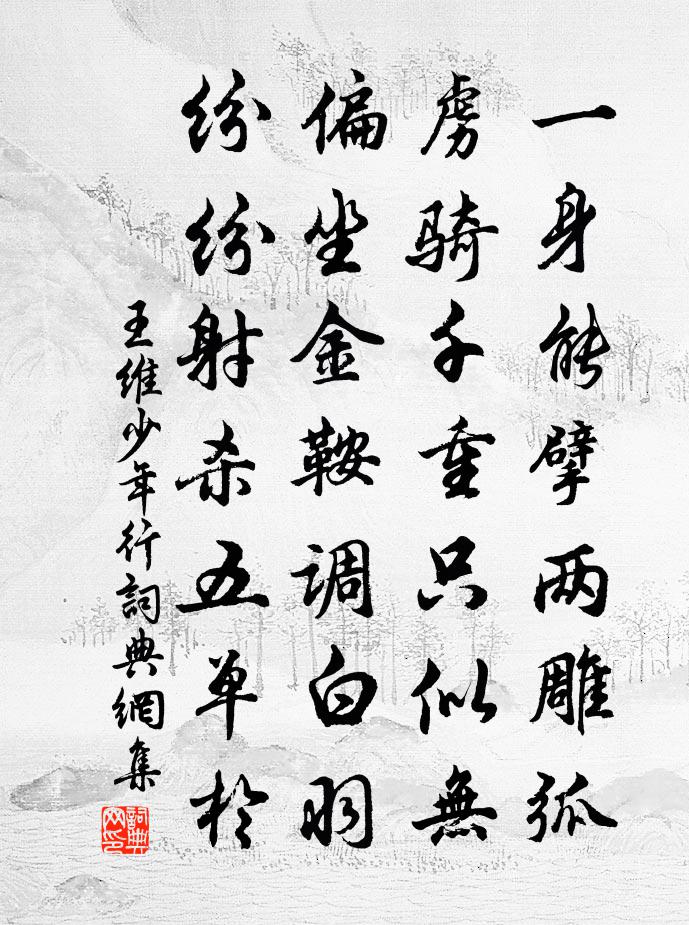 一身能擘两雕弧
虏骑千重只似無
偏坐金鞍调白羽
纷纷射杀五单於
王維少年行詞典網集
詞典网印